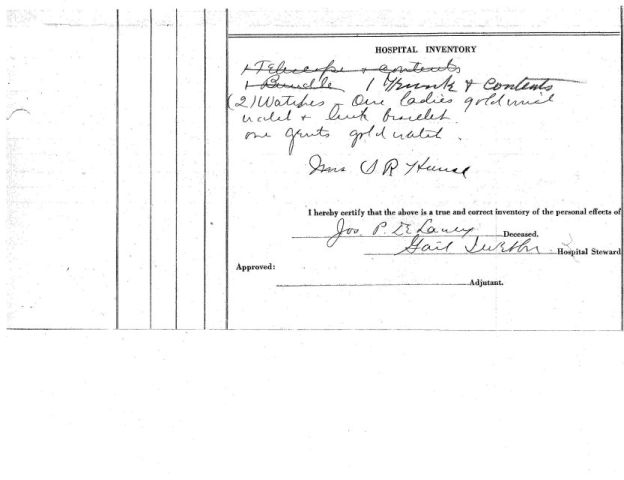 HOSPITAL INVENTORY
1 Telescope + contents
1 Bundle 1 Trunk & Contents
(2) Watches - One ladies gold
watch + link bracelet.
one gents gold watch.
Mrs S R
I hereby certify that the above is a true and correct inventory of the personal effects of
Jos. P. DeLaney Deceased.
Gail Hospital Steward
Approved:
Adjutant.